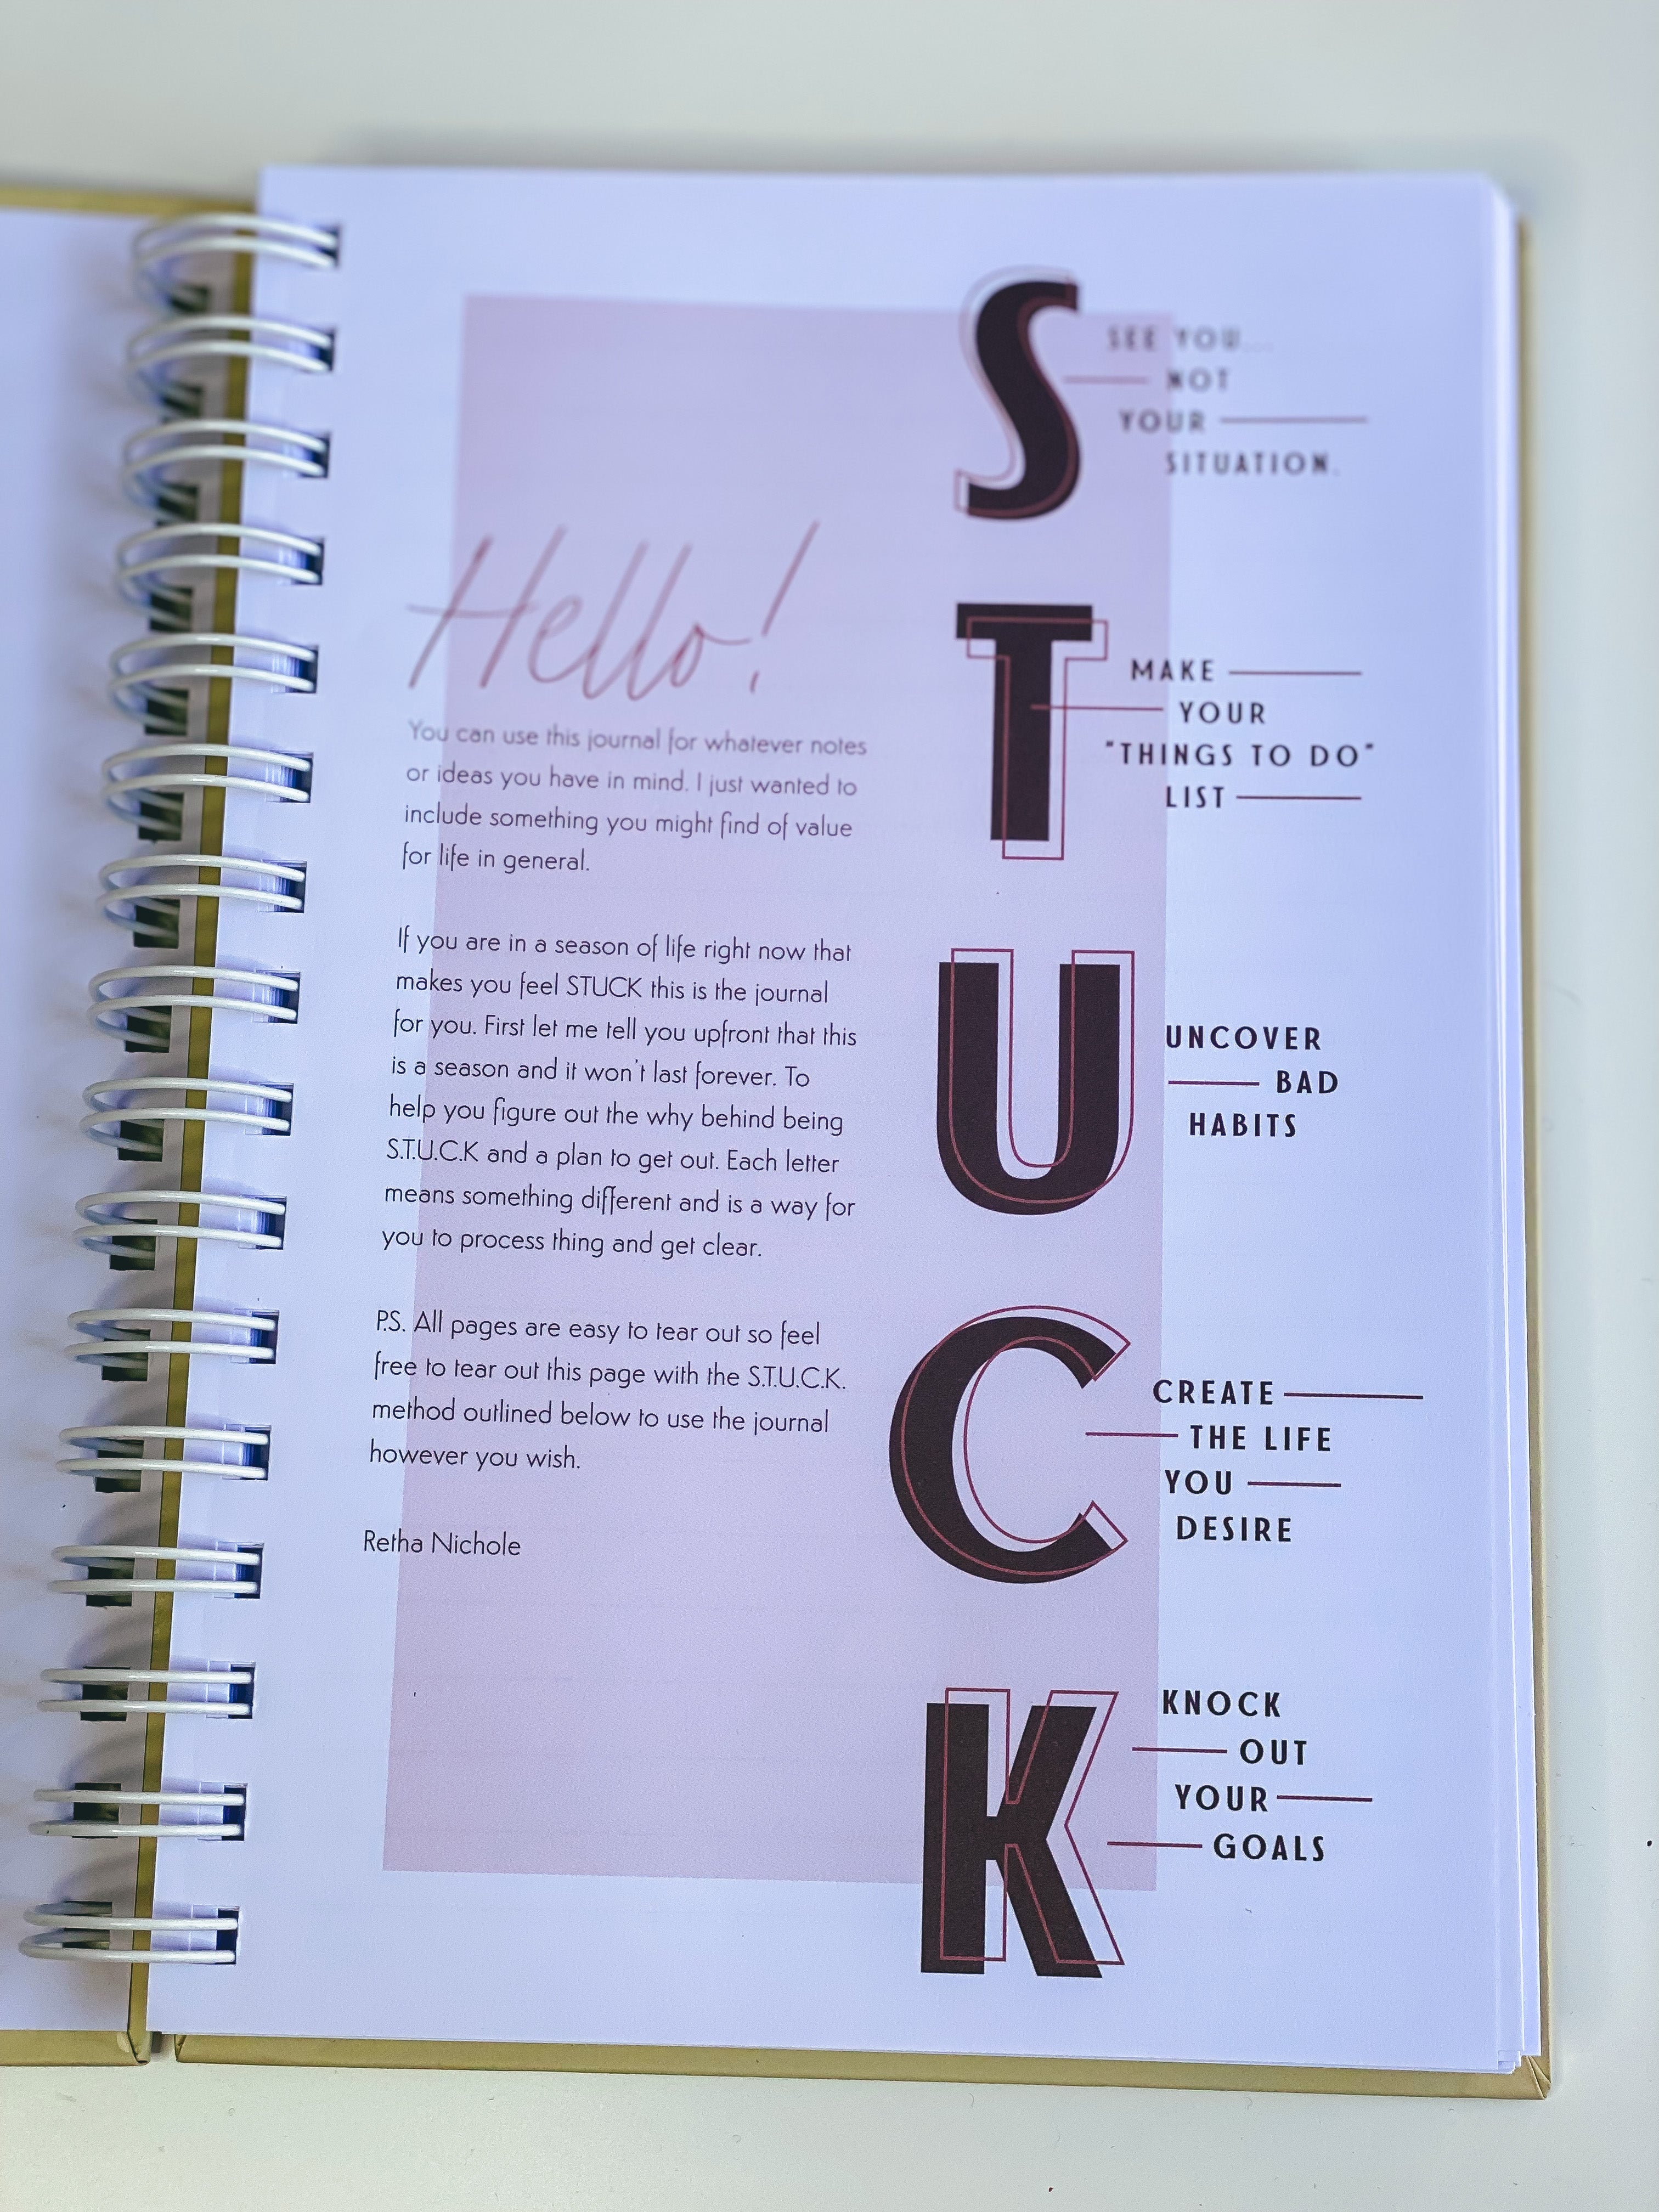 Hello!
You can use this journal for whatever notes
or ideas you have in mind. I just wanted to
include something you might find of value
for life in general.
If you are in a season of life right now that
makes you feel STUCK this is the journal
for you. First let me tell you upfront that this
is a season and it won't last forever. To
help you figure out the why behind being
S.T.U.C.K and a plan to get out. Each letter
means something different and is a way for
you to process thing and get clear.
P.S. All pages are easy to tear out so feel
free to tear out this page with the S.T.U.C.K.
method outlined below to use the journal
however you wish.
Retha Nichole
S
SEE YOU...
NOT
YOUR
SITUATION.
T
MAKE
YOUR
"THINGS TO DO"
LIST
U
UNCOVER
BAD
HABITS
C
CREATE
THE LIFE
YOU
DESIRE
K
KNOCK
OUT
YOUR
GOALS